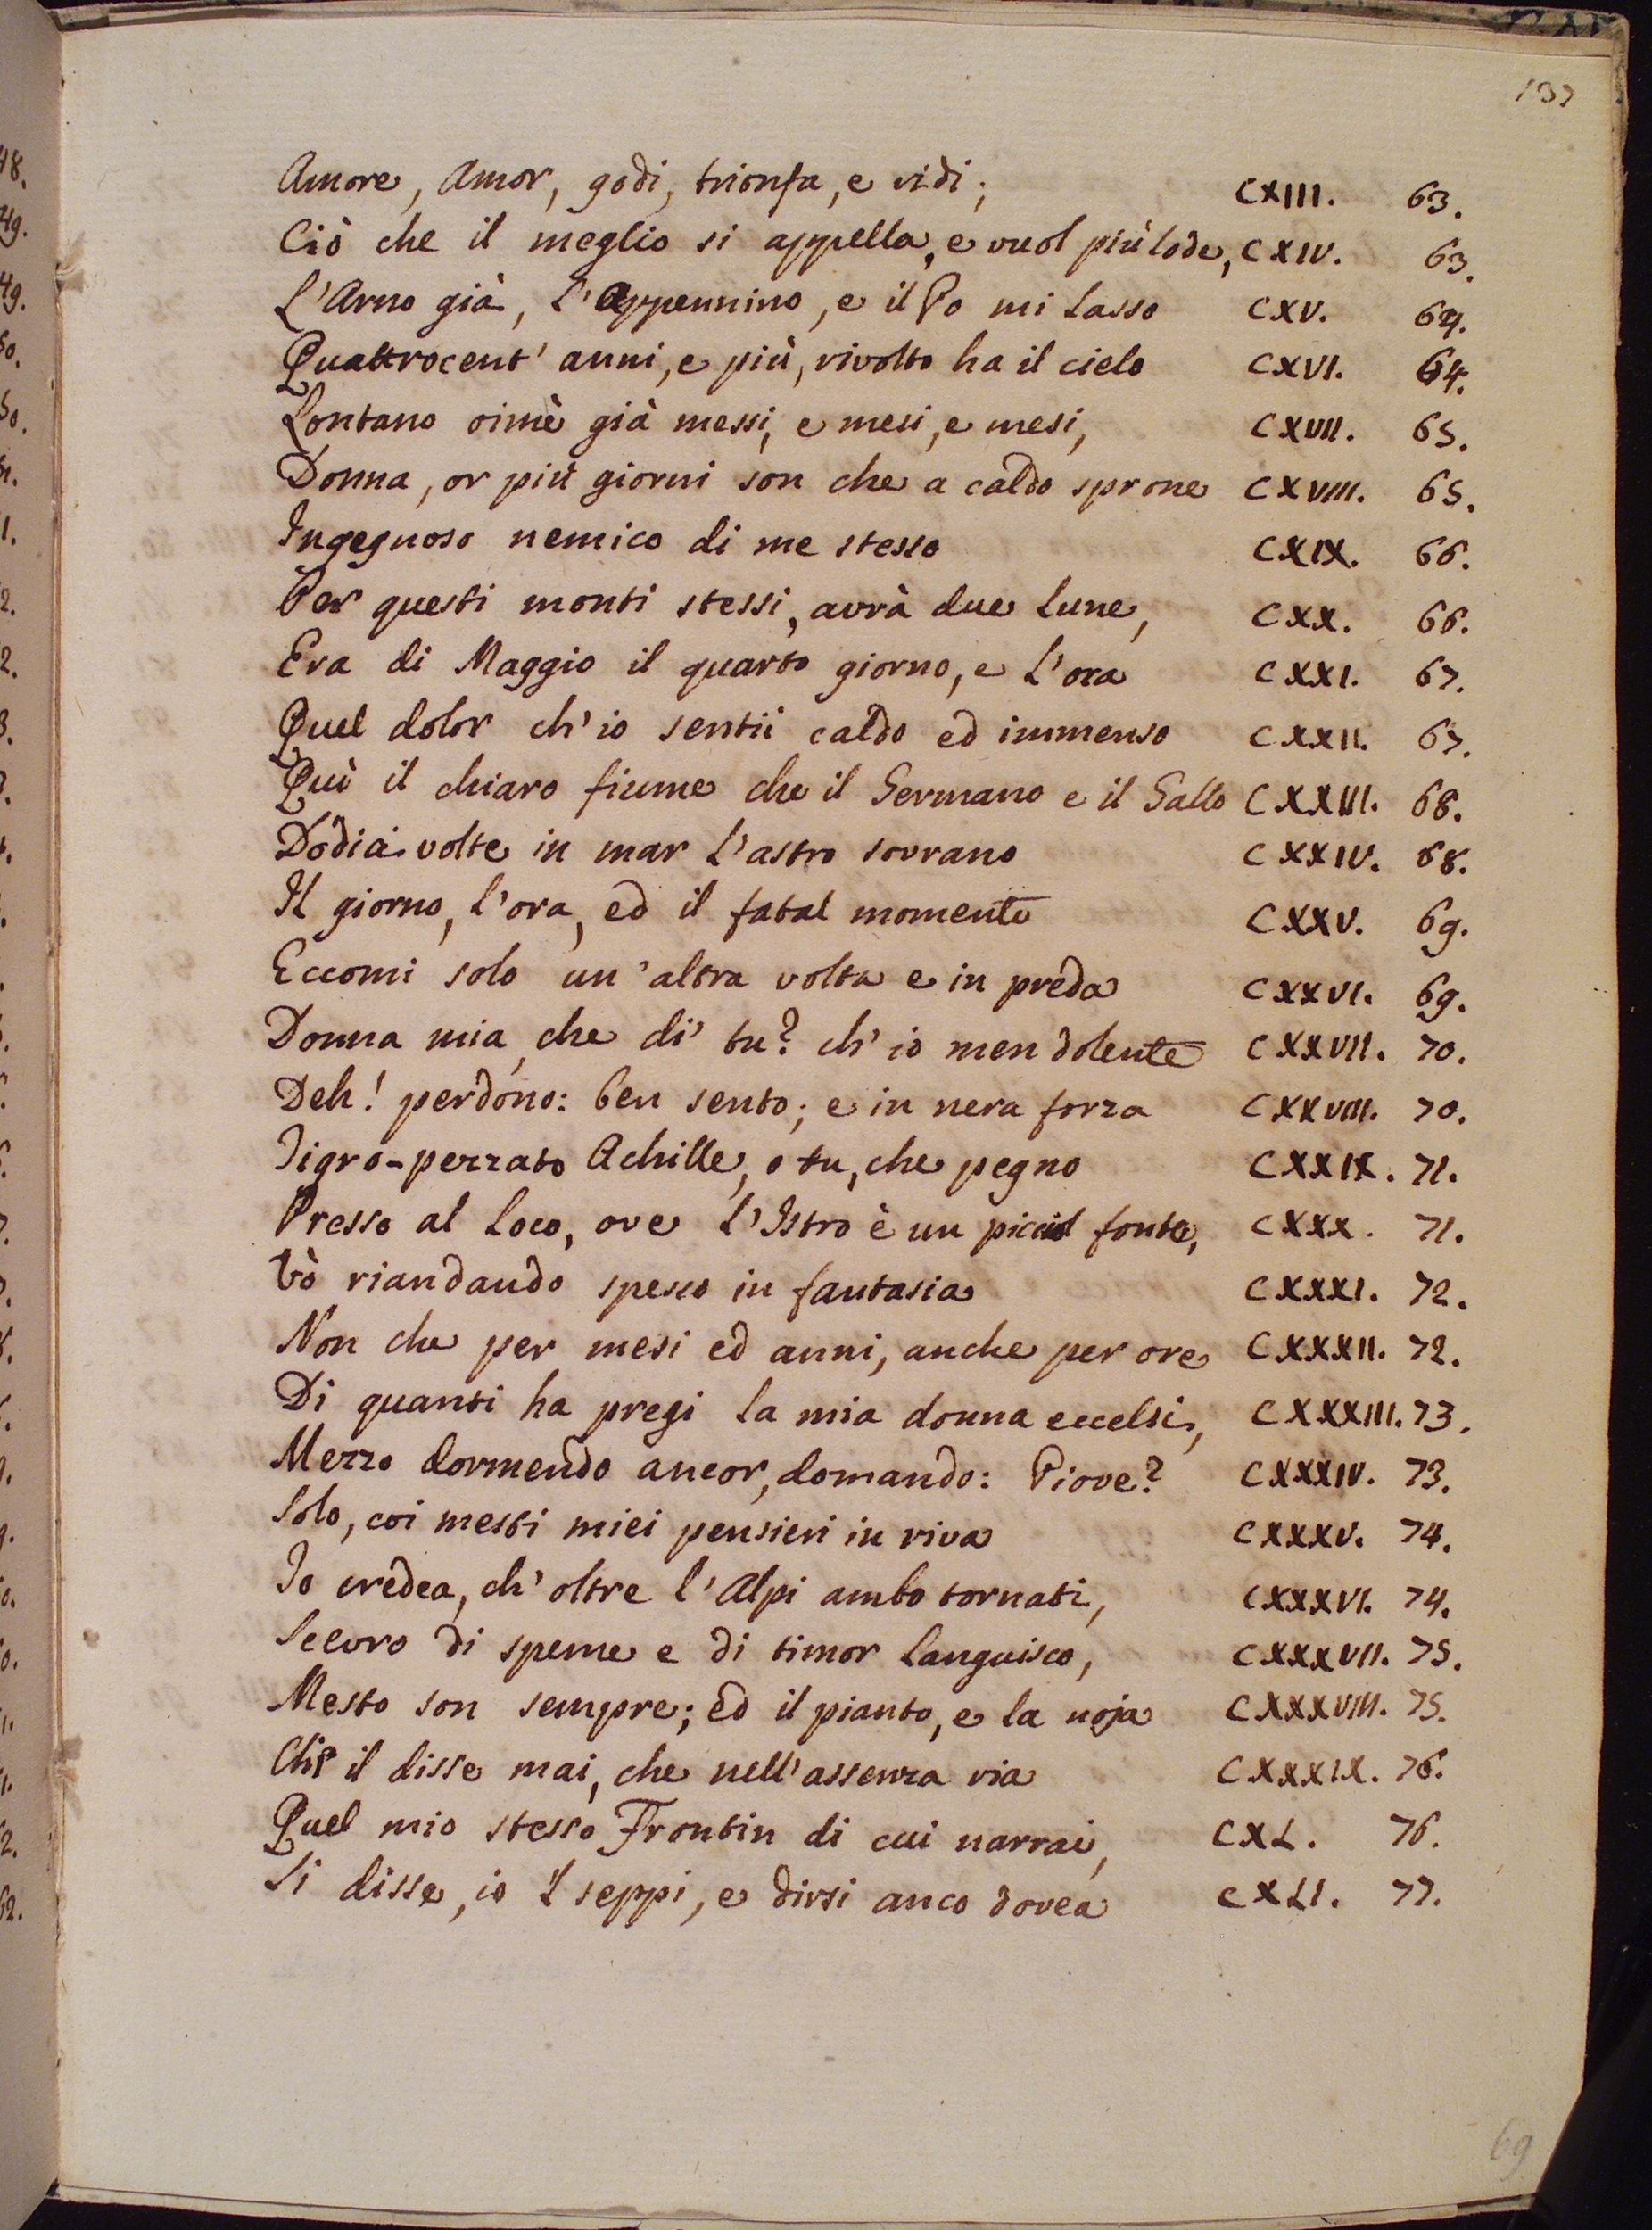 137
Amore, Amor, godi, trionfa, e ridi;	CXIII.	63.
Ciò che il meglio si appella, e vuol più lode,	CXIV.	63.
L'Arno già, l'Appennino, e il Po mi lasso	CXV.	64.
Quattrocent' anni, e più, rivolto ha il cielo	CXVI.	64.
Lontano oimè già messi, e mesi, e mesi,	CXVII.	65.
Donna, or più giorni son che a caldo sprone	CXVIII.	65.
Ingegnoso nemico di me stesso	CXIX.	66.
Per questi monti stessi, avrà due lune,	CXX.	66.
Era di Maggio il quarto giorno, e l'ora	CXXI.	67.
Quel dolor ch'io sentii caldo ed immenso	CXXII.	67.
Quì il chiaro fiume che il Germano e il Gallo	CXXIII.	68.
Dodici volte in mar l'astro sovrano	CXXIV.	68.
Il giorno, l'ora, ed il fatal momento	CXXV.	69.
Eccomi solo un'altra volta e in preda	CXXVI.	69.
Donna mia, che di' tu? ch'io men dolente	CXXVII.	70.
Deh! perdono: ben sento; e in nera forza	CXXVIII.	70.
Tigro-pezzato Achille, o tu, che pegno	CXXIX.	71.
Presso al loco, ove l'Istro è un picciol fonte,	CXXX.	71.
Vò riandando spesso in fantasia	CXXXI.	72.
Non che per mesi ed anni, anche per ore	CXXXII.	72.
Di quanti ha pregi la mia donna eccelsi,	CXXXIII.	73.
Mezzo dormendo ancor, domando: Piove?	CXXXIV.	73.
Solo, coi mesti miei pensieri in riva	CXXXV.	74.
Io credea, ch'oltre l'Alpi ambo tornati,	CXXXVI.	74.
Scevro di speme e di timor languisco,	CXXXVII.	75.
Mesto son sempre; ed il pianto, e la noja	CXXXVIII.	75.
Chi il disse mai, che nell'assenza ria	CXXXIX.	76.
Quel mio stesso Frontin di cui narrai,	CXL.	76.
Si disse, io 'l seppi, e dirsi anco dovea	CXLI.	77.
69